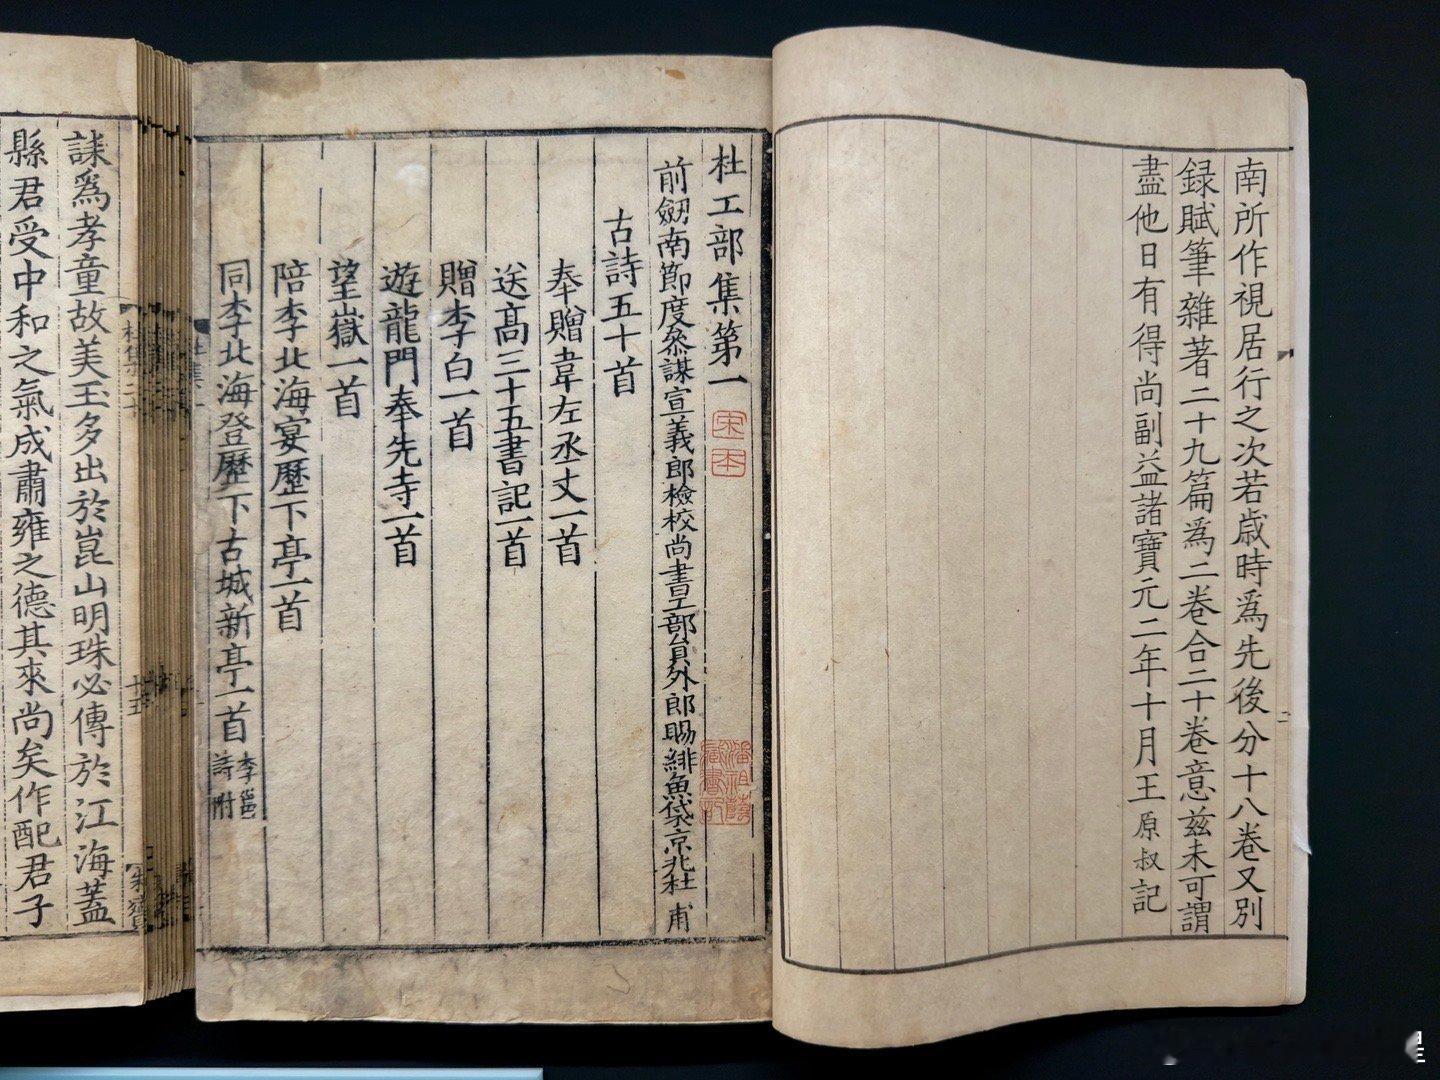 南所作視居行之次若歲時爲先後分十八卷又别
録賦筆雜著二十九篇爲二卷合二十卷意兹未可謂
盡他日有得尚副益諸寶元二年十月王原叔記
二
杜工部集第一
前劒南節度叅謀宣義郎檢校尚書工部員外郎賜緋魚袋京兆杜甫
古詩五十首
奉贈韋左丞丈一首
送髙三十五書記一首
贈李白一首
遊龍門奉先寺一首
望嶽一首
陪李北海宴歷下亭一首
同李北海登歷下古城新亭一首李邕詩附
潘祖蔭藏書記
杜集二十
十五
誄爲孝童故美玉多出於崑山明珠必傳於江海蓋
縣君受中和之氣成肅雍之德其來尚矣作配君子